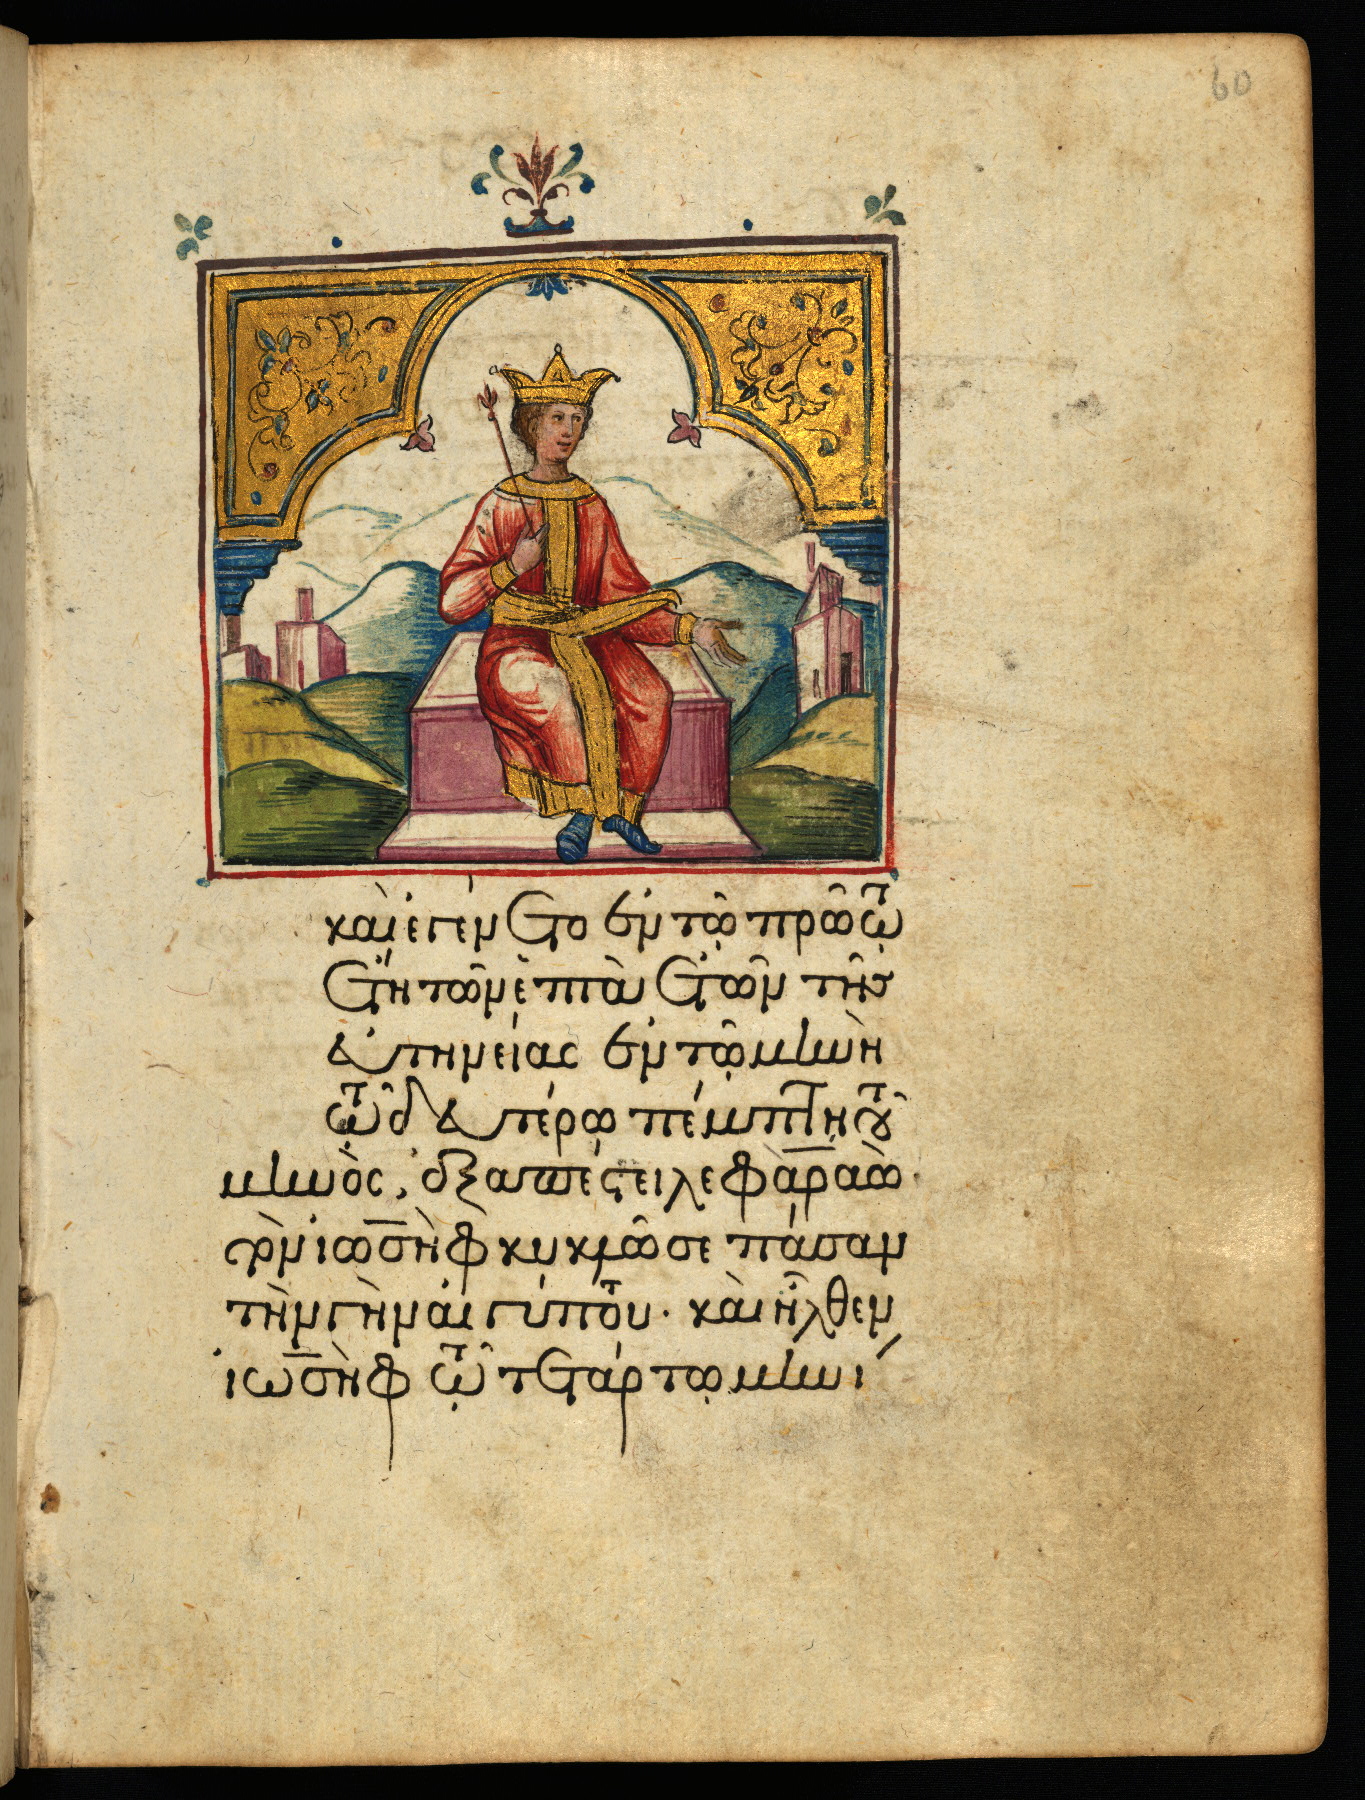 60
καὶ ἐγένετο ἐν τῷ πρώτῳ
ἔτη τῶν ἑπτὰ ἐτῶν τῆς
εὐτηνείας ἐν τῷ μηνὴ
τῷ δευτέρῳ πέμπτη τοῦ
μηνὸς, ἐξαπέστειλε φαραὼ
τὸν ἰωσὴφ κυκλῶσε πάσαν
τὴν γὴν αἰγύπτου. καὶ ἦλθεν
ἰωσὴφ τῷ τετάρτῳ μηνί